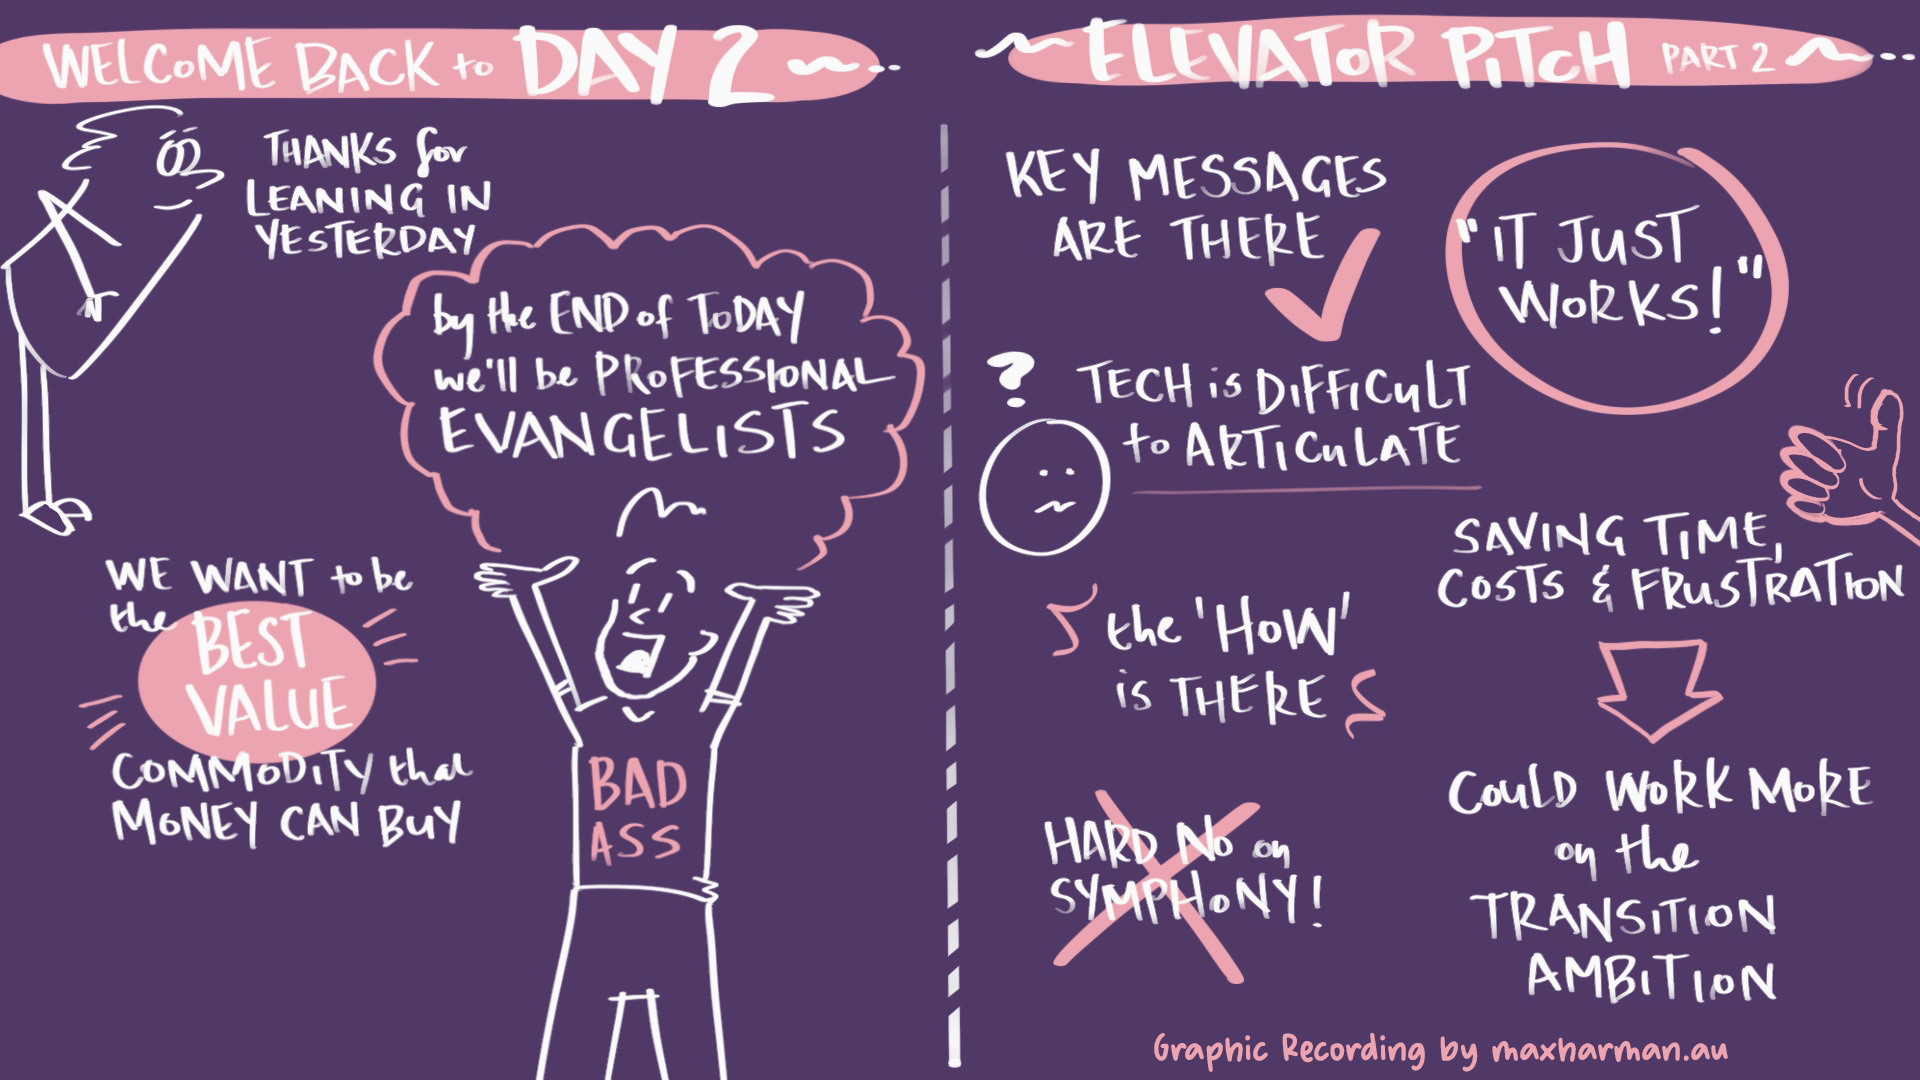 WELCOME BACK to DAY 2
THANKS for
LEANING IN
YESTERDAY
by the END of TODAY
we'll be PROFESSIONAL
EVANGELISTS
WE WANT to be
the BEST
VALUE
COMMODITY that
MONEY CAN BUY
BAD
ASS
ELEVATOR PITCH PART 2
KEY MESSAGES
ARE THERE
"IT JUST
WORKS!"
?
TECH is DIFFICULT
to ARTICULATE
SAVING TIME,
COSTS & FRUSTRATION
the 'HOW'
is THERE
COULD WORK MORE
on the
TRANSITION
AMBITION
HARD NO on
SYMPHONY!
Graphic Recording by maxharman.au